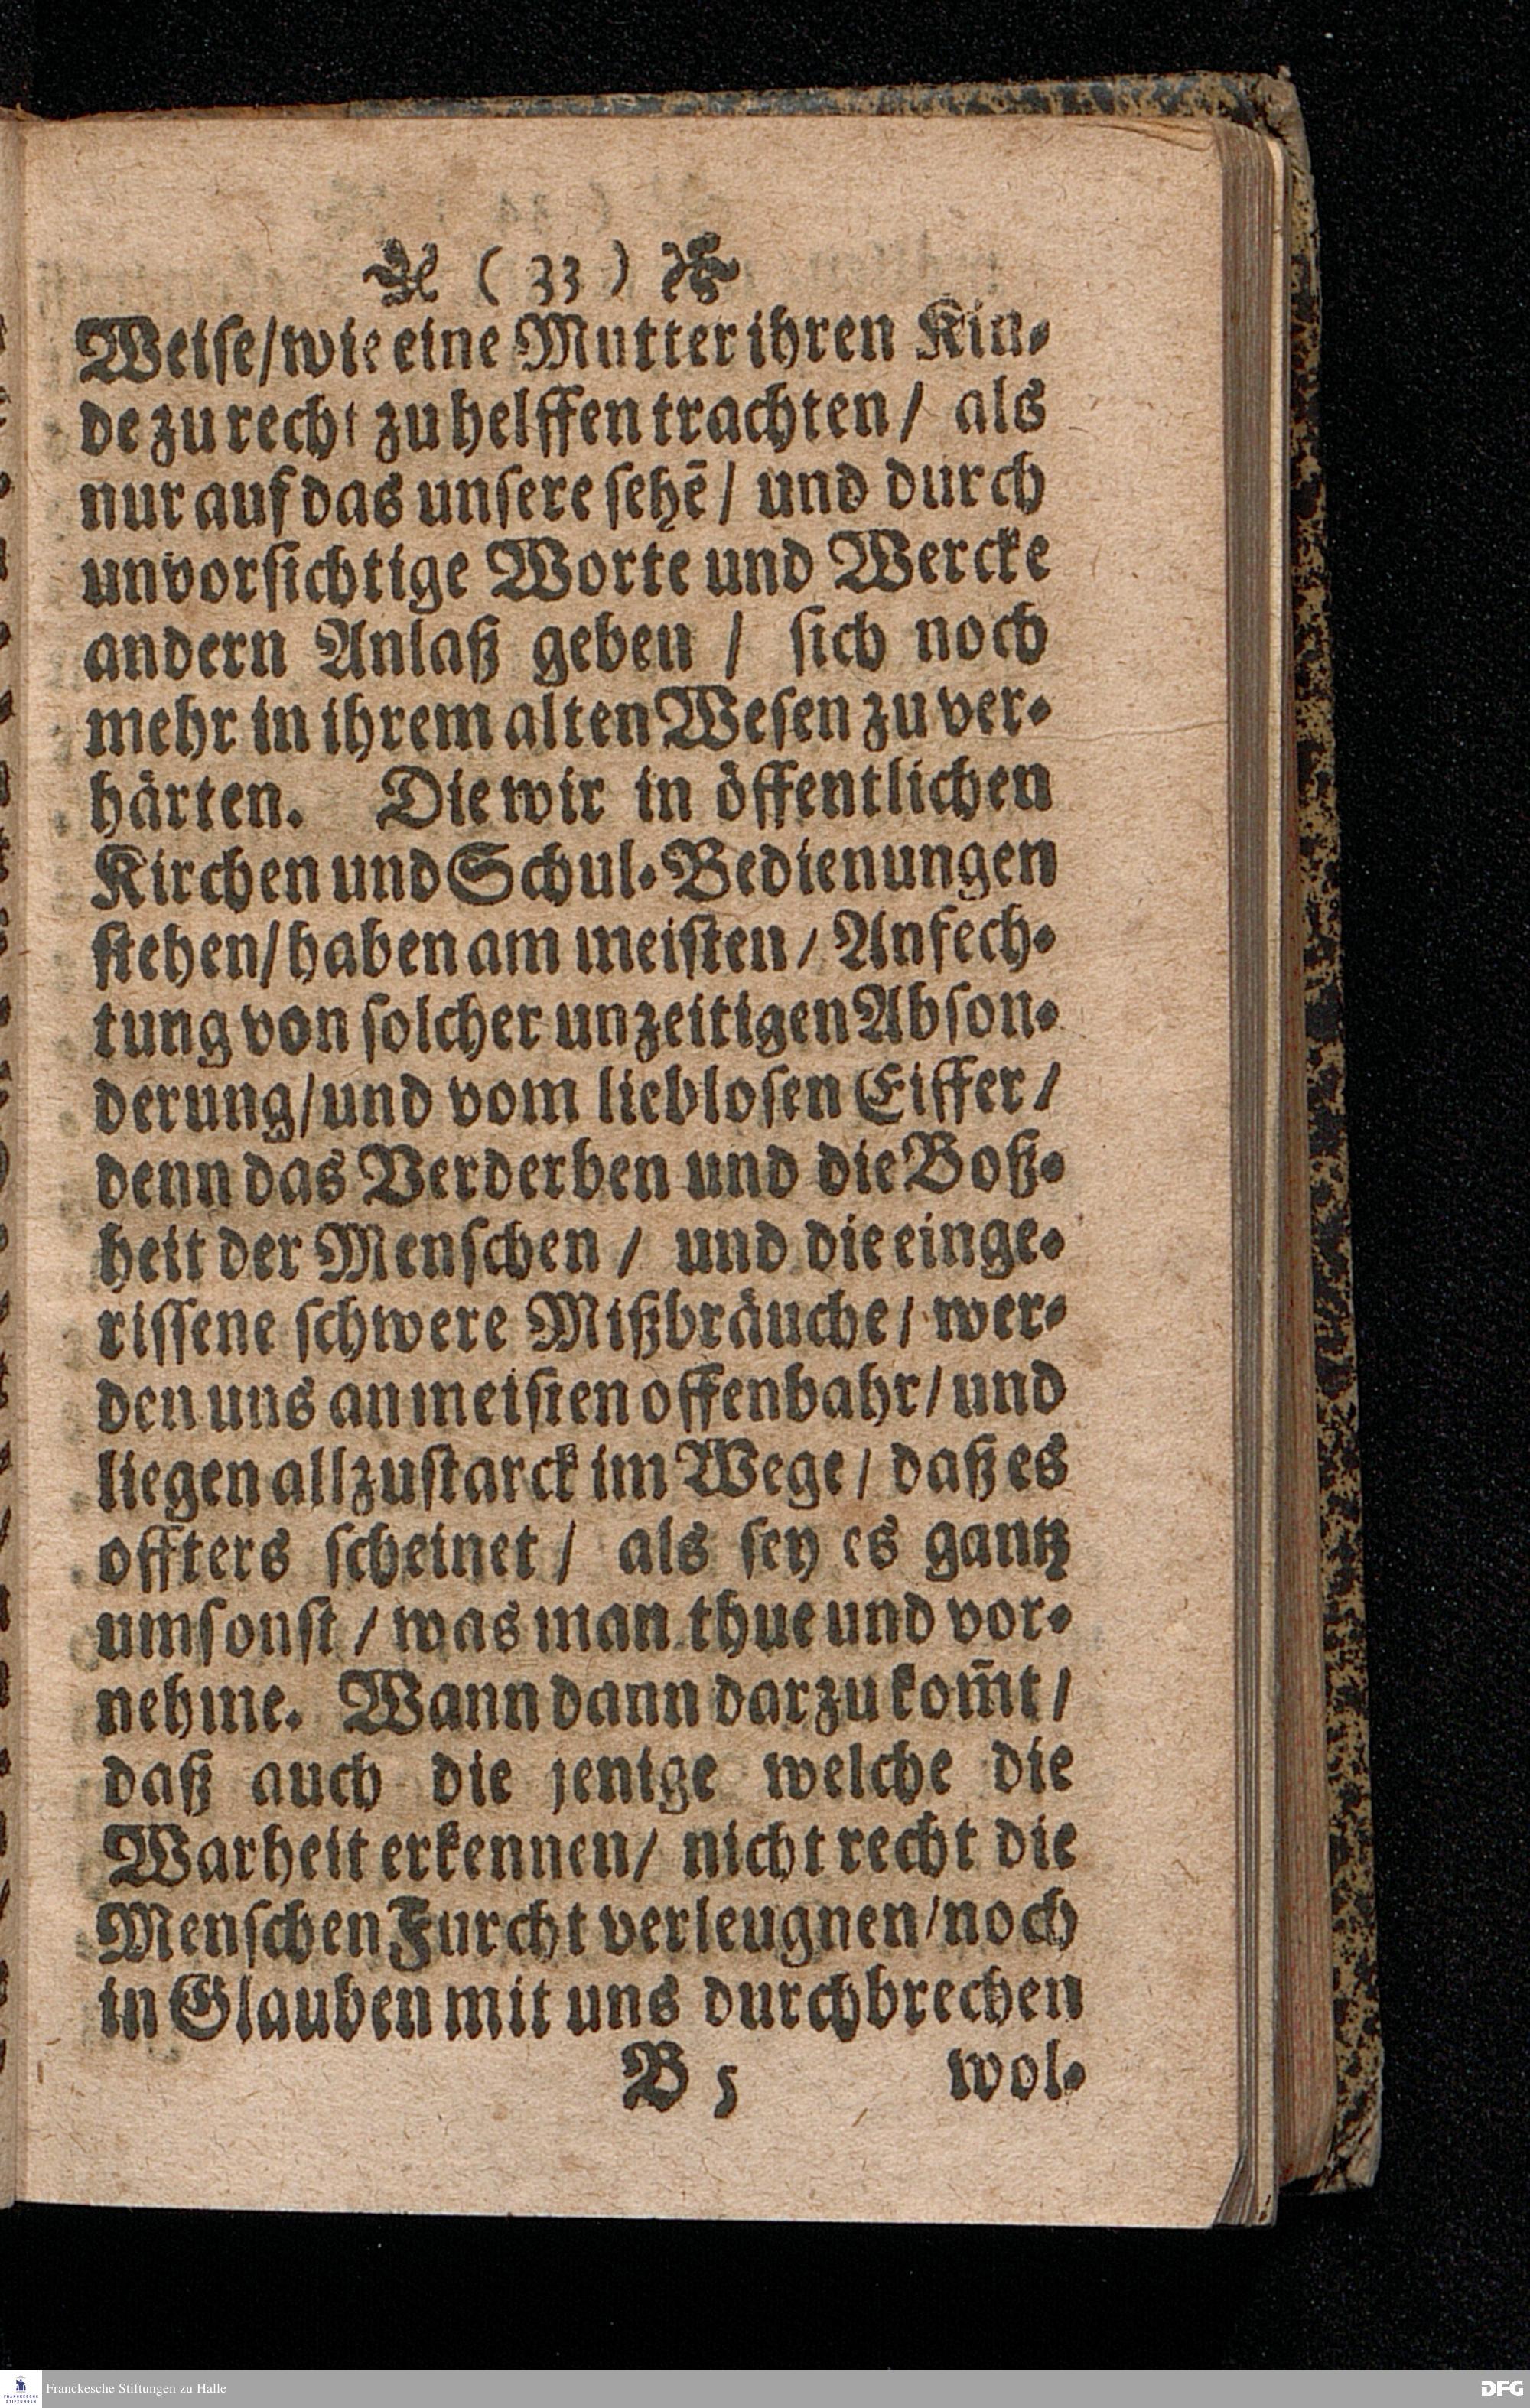 ( 33 )
Weise/wie eine Mutter ihren Kin-
de zu recht zu helffen trachten/ als
nur auf das unsere sehē/ und durch
unvorsichtige Worte und Wercke
andern Anlaß geben / sich noch
mehr in ihrem alten Wesen zu ver-
härten. Die wir in öffentlichen
Kirchen und Schul-Bedienungen
stehen/ haben am meisten/ Anfech-
tung von solcher unzeitigen Abson-
derung/und vom lieblosen Eiffer/
denn das Verderben und die Boß-
heit der Menschen / und die einge-
rissene schwere Mißbräuche/ wer-
den uns an meisten offenbahr/und
liegen allzustarck im Wege/ daß es
offters scheinet/ als sey es gantz
umsonst / was man thue und vor-
nehme. Wann dann darzu kom̄t/
daß auch die jenige welche die
Warheit erkennen/ nicht recht die
Menschen Furcht verleugnen/noch
in Glauben mit uns durchbrechen
B 5 wol-
Franckesche Stiftungen zu Halle
FRANCKESCHE
STIFTUNGEN
DFG